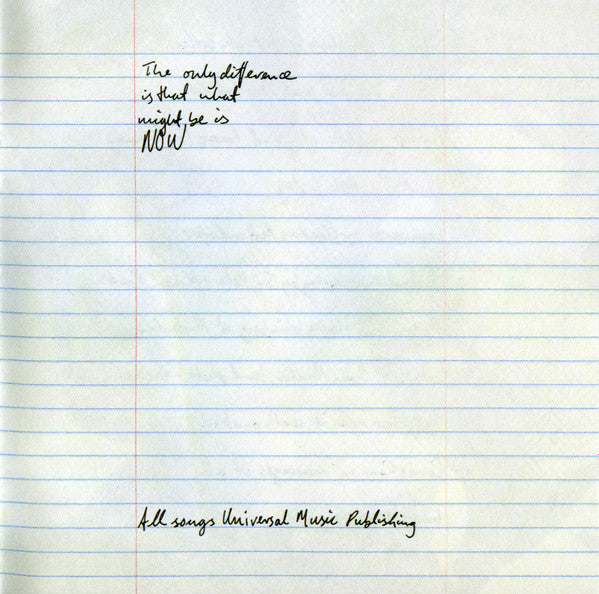 The only difference
is that what
might be is
NOW
All songs Universal Music Publishing